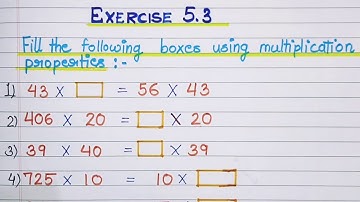 EXERCISE 5.3
Fill the following boxes using multiplication
properties :-
1) 43 × □ = 56 × 43
2) 406 × 20 = □ × 20
3) 39 × 40 = □ × 39
4) 725 × 10 = 10 × □